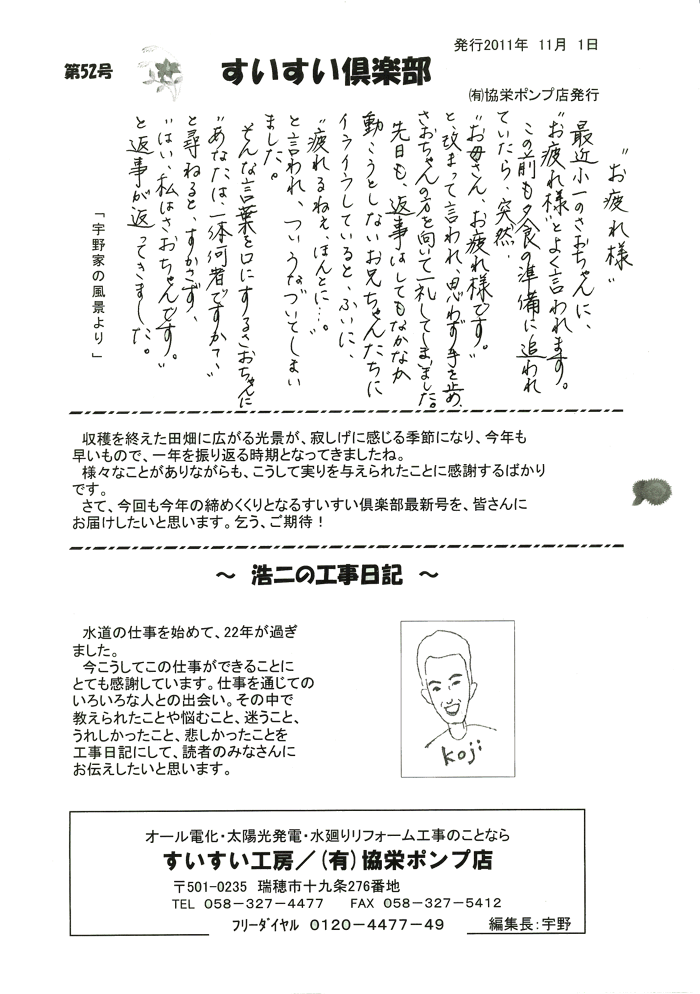 発行2011年 11月 1日
第52号
すいすい倶楽部
㈲協栄ポンプ店発行
"お疲れ様"
最近小一のさおちゃんに、
"お疲れ様"とよく言われます。
この前も夕食の準備に追われ
ていたら、突然、
"お母さん、お疲れ様です。"
と、改まって言われ、思わず手を止め、
さおちゃんの方を向いて一礼してしまいました。
先日も、返事はしてもなかなか
動こうとしないお兄ちゃんたちに
イライラしていると、ふいに、
"疲れるねぇ、ほんとに…。"
と言われ、ついうなづいてしまい
ました。
そんな言葉を口にするさおちゃんに
"あなたは、一体何者ですか?"
と尋ねると、すかさず、
"はい、私はさおちゃんです。"
と返事が返ってきました。
「宇野家の風景より」
収穫を終えた田畑に広がる光景が、寂しげに感じる季節になり、今年も
早いもので、一年を振り返る時期となってきましたね。
様々なことがありながらも、こうして実りを与えられたことに感謝するばかり
です。
さて、今回も今年の締めくくりとなるすいすい倶楽部最新号を、皆さんに
お届けしたいと思います。乞う、ご期待！
～ 浩二の工事日記 ～
水道の仕事を始めて、22年が過ぎ
ました。
今こうしてこの仕事ができることに
とても感謝しています。仕事を通じての
いろいろな人との出会い。その中で
教えられたことや悩むこと、迷うこと、
うれしかったこと、悲しかったことを
工事日記にして、読者のみなさんに
お伝えしたいと思います。
koji
オール電化・太陽光発電・水廻りリフォーム工事のことなら
すいすい工房／(有)協栄ポンプ店
〒501-0235 瑞穂市十九条276番地
TEL 058-327-4477 FAX 058-327-5412
フリーダイヤル 0120-4477-49
編集長:宇野